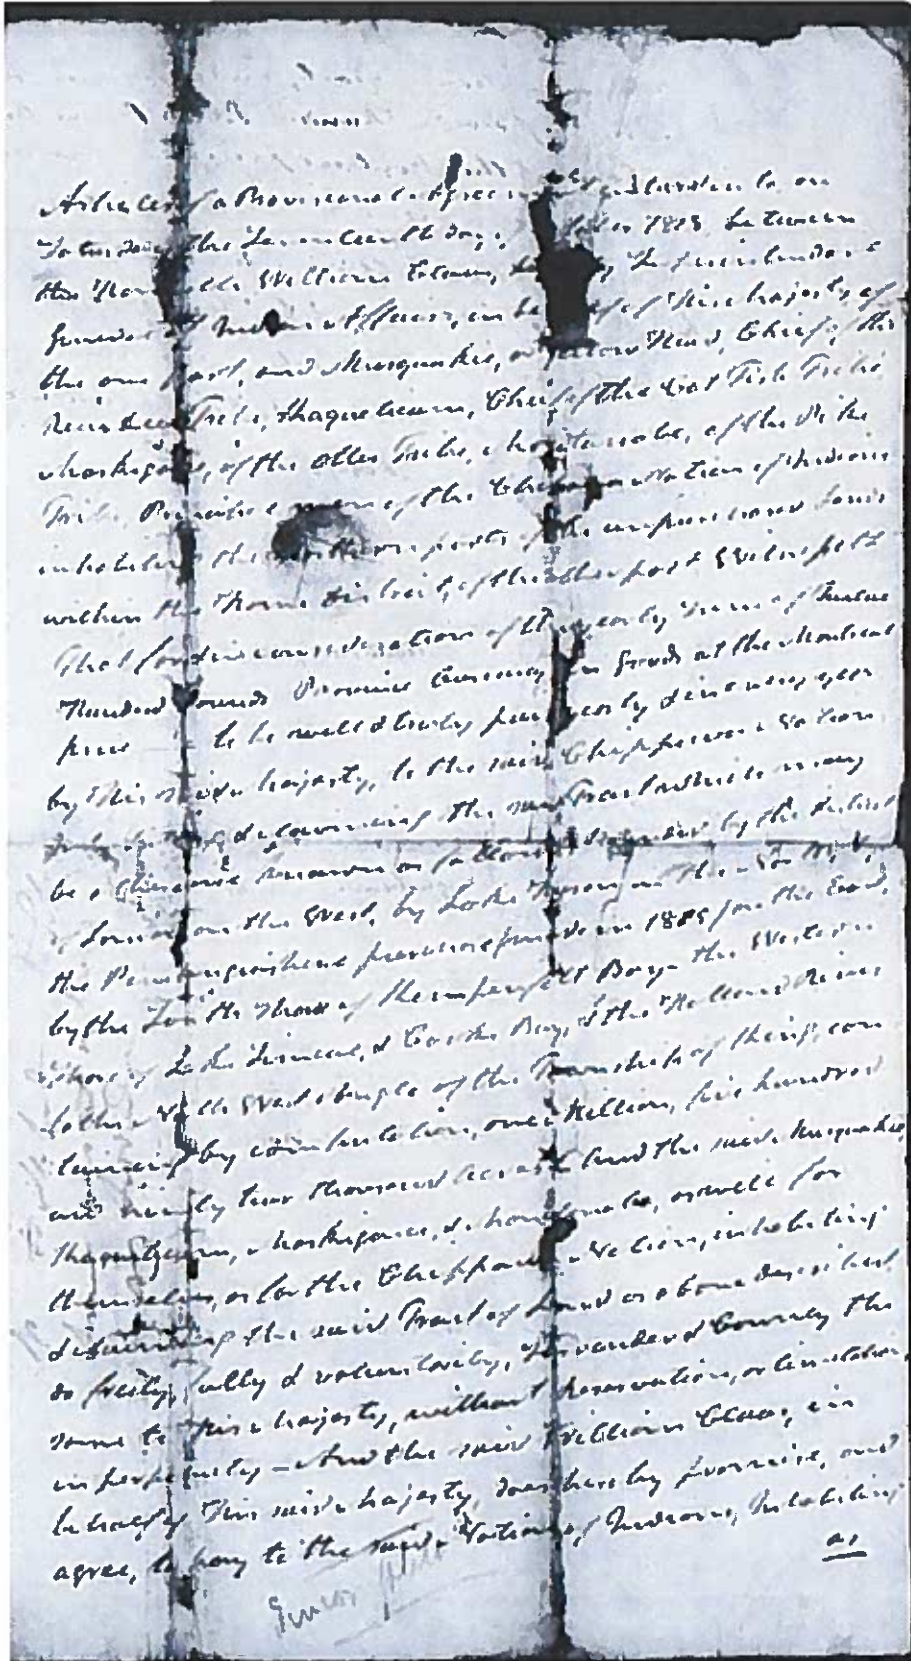 Articles of a Provisional Agreement entered into on
Saturday the Seventeenth day of 1818 between
the Honorable William Claus, Deputy Superintendent
General of Indian Affairs, in behalf of His Majesty of
the one Part, and Musquakie, or Yellow Head, Chief of the
Rein Deer Tribe, Kaqueticum, Chief of the Cat Fish Tribe
Maskigonce, of the Otter Tribe, Manitonobe, of the Pike
Tribe, Principal men of the Chippewa Nation of Indians
inhabiting the northern parts of the unpurchased Lands
within the Home District, of the other part Witnesseth
That for & in consideration of the yearly Sum of Twelve
Hundred Pounds Province Currency in goods at the Montreal
price to be well & truly paid yearly & in every year
by His said Majesty, to the said Chippewa Nation
inhabiting & claiming the said Tract which may
be otherwise known as follows Bounded by the District
of London on the West, by Lake Huron on the North, by
the Penetanguishene purchase made in 1815 on the East,
by the South Shore of Kempenfelt Bay the Western
Shore of Lake Simcoe, & Cooks Bay, & the Holland River
to the North West Angle of the Township of King, con
taining by computation, one Million, five hundred
and ninety two thousand acres And the said Musquakie,
Kaqueticum, Maskigonce, & Manitonobe, as well for
themselves, as for the Chippewa Nation, inhabiting
& claiming the said Tract of Land as above described
do freely, fully & voluntarily, Surrender & Convey the
same to His Majesty, without Reservation, or limitation,
in perpetuity – And the said William Claus, in
behalf of His said Majesty, does hereby promise, and
agree, to pay to the said Nation of Indians, Inhabiting
as